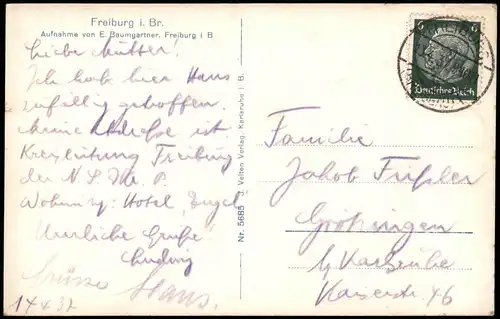 Freiburg i. Br.
Aufnahme von E. Baumgartner, Freiburg i B
Liebe Mutter!
Ich hab hier Hans
zufällig getroffen.
Meine Adresse ist
Kreisleitung Freiburg
der N. S.
Wohnung: Hotel „Engel"
Herzliche Grüße
Ludwig
Grüsse Hans.
Nr. 5685 J. Velten Verlag, Karlsruhe i. B.
6
Deutsches Reich
Familie
Jakob
Grötzingen
b/ Karlsruhe
Kaiserstr. 46